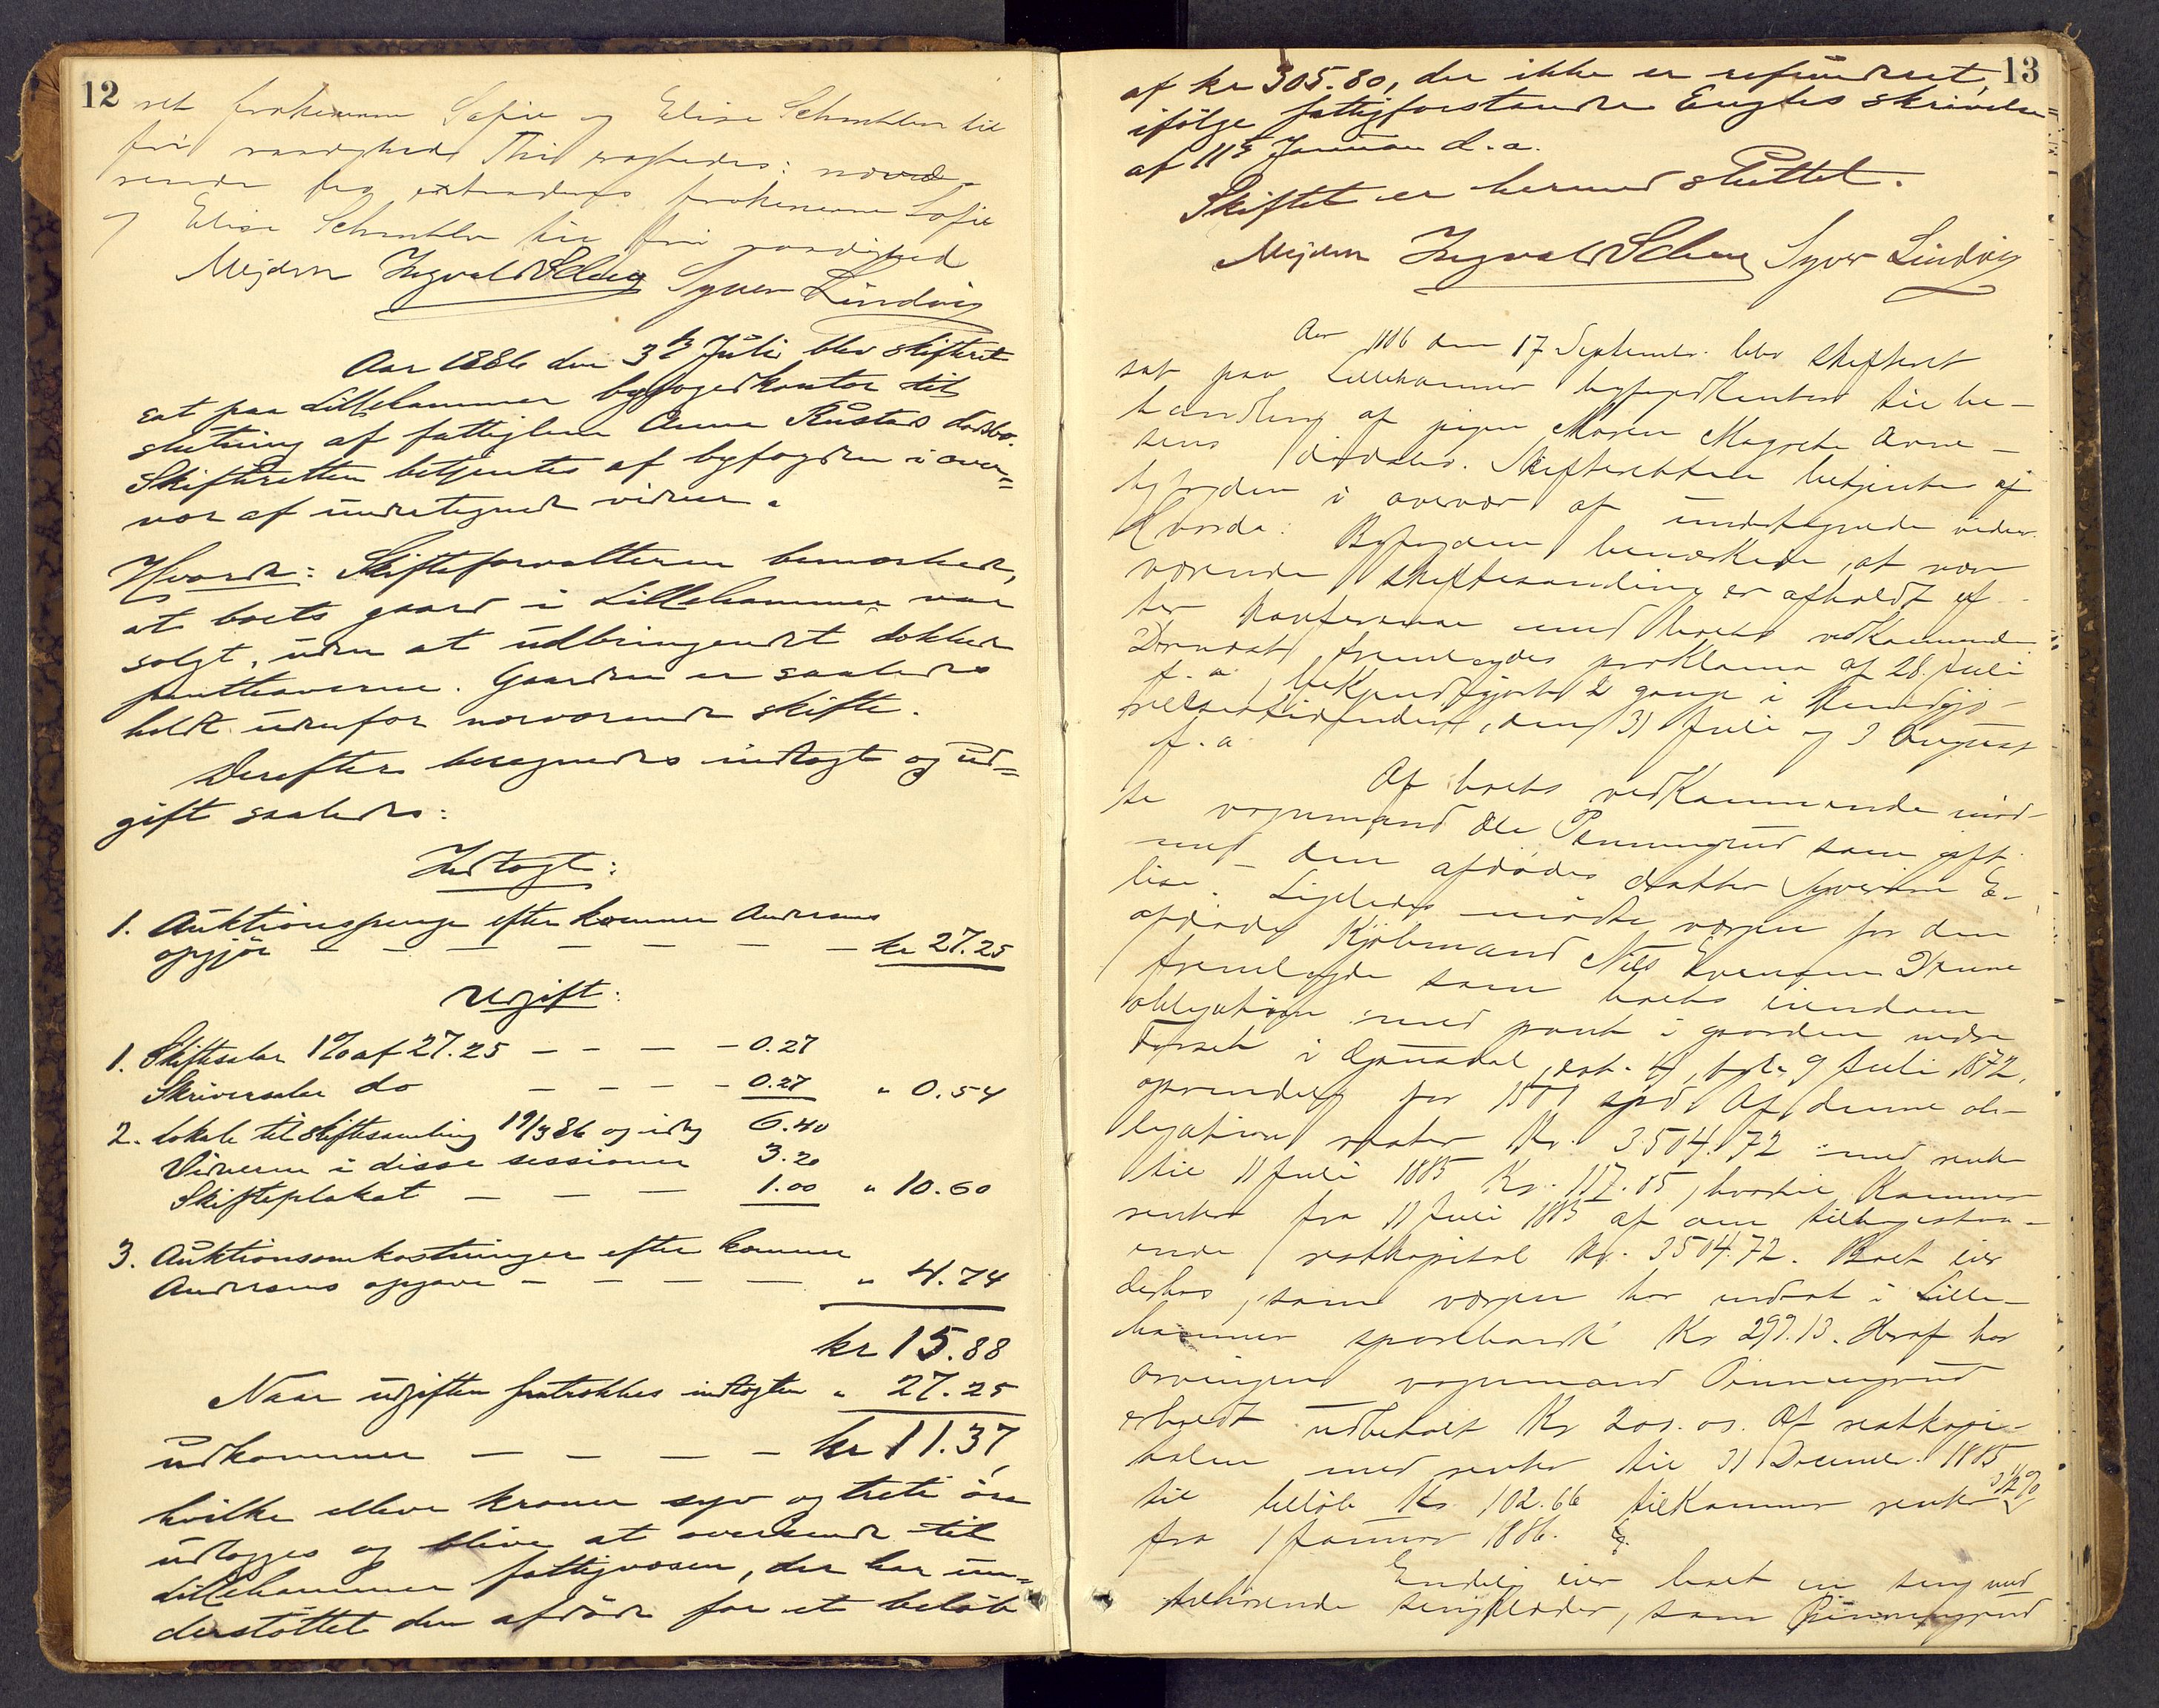 12
ret frøknerne Sofie og Elise Schmbler til
fri raadighed. Thi eragtedes: nærvæ-
rende bo extraderes frøknerne Sofie
og Elise Schmbler til fri raadighed
Mejdem Ingvald Schey Syver Lindvig
Aar 1886 den 3die Juli blev skifteret
sat paa Lillehammer byfogedkontor til
slutning af fattiglem Anne Rustads dødsbo.
Skifteretten betjentes af byfogden i over=
vær af undertegnede vidner.
Hvorda: Skifteforvalteren bemærkede,
at boets gaard i Lillehammer var
solgt, uden at udbringendet dækked
panthaverne. Gaarden er saaledes
holdt udenfor nærværende skifte.
Derefter beregnedes indtægt og ud=
gift saaledes:
Indtægt:
1. Auktionspenge efter kæmner Andersens
opgjør - - - - - - - kr 27.25
Udgift:
1. Skiftesalær 1% af 27.25 - - - - 0.27
Skriversalær do - - - - 0.27 " 0.54
2. Lokale til skiftesamling 19/3 86 og idag 6.40
Vidnerne i disse sessioner 3.20
Skifteplakat - - - 1.00 " 10.60
3. Auktionsomkostninger efter kæmner
Andersens opgave - - - - " 4.74
kr 15.88
Naar udgiften fratrækkes indtægten " 27.25
udkommer - - - - kr 11.37,
hvilke elleve kroner syv og treti øre
udlægges og blive at oversende til
Lillehammer fattigvæsen, der har un=
derstøttet den afdøde for et beløb
13
af kr 305.80, der ikke er refunderet,
ifølge fattigforstander Engtes skrivelse
af 11te Januar d.a.
Skiftet er hermed sluttet.
Mejdem Ingvald Schey Syver Lindvig
Aar 1886 den 17 September blev skifteret
sat paa Lillehammer byfogedkontor til be-
handling af pigen Maren Magrete Arne-
sens dødsbo. Skifteretten betjentes af
byfogden i overvær af undertegnede vidner.
Hvorda: Byfogden bemærkede, at nær
værende skiftesamling er afholdt ef-
ter konferance med boets vedkommende
Dernæst fremlagdes proklama af 28. Juli
d. a. bekjendtgjort 2 gange i Kundgjø-
relsestidenden, den 31 Juli og 3 August
d. a.
Af boets vedkommende mød-
te vognmand Ole Pinnerud som gift
med den afdødes datter Syverine E-
lise. Ligeledes mødte værgen for den
afdøde Kjøbmand Nils Evensen Denne
fremlagde som boets eiendom
obligation med pant i gaarden nedre
i Gausdal, dat. 4, tgl. 9 Juli 1872,
oprindelig for 1500 spd. Af denne ob-
ligation rester Kr. 3504.72 med rente
til 11 Juli 1885 Kr. 117.85, hvortil kommer
renter fra 11 Juli 1885 af den tilbagestaa-
ende restkapital Kr. 3504.72. Boet eier
derhos, som værgen har indsat i Lille-
hammer sparebank Kr 297.13. Heraf har
arvingen vognmand Pinnerud
erholdt udbetalt Kr 200.00. Af restkapi-
talen med renter til 31 December 1885
til beløb Kr. 102.66 tilkommer renter
fra 1 Januar 1886.
Endelig eier boet en seng med
tilhørende sengklæder, som Pinnerud